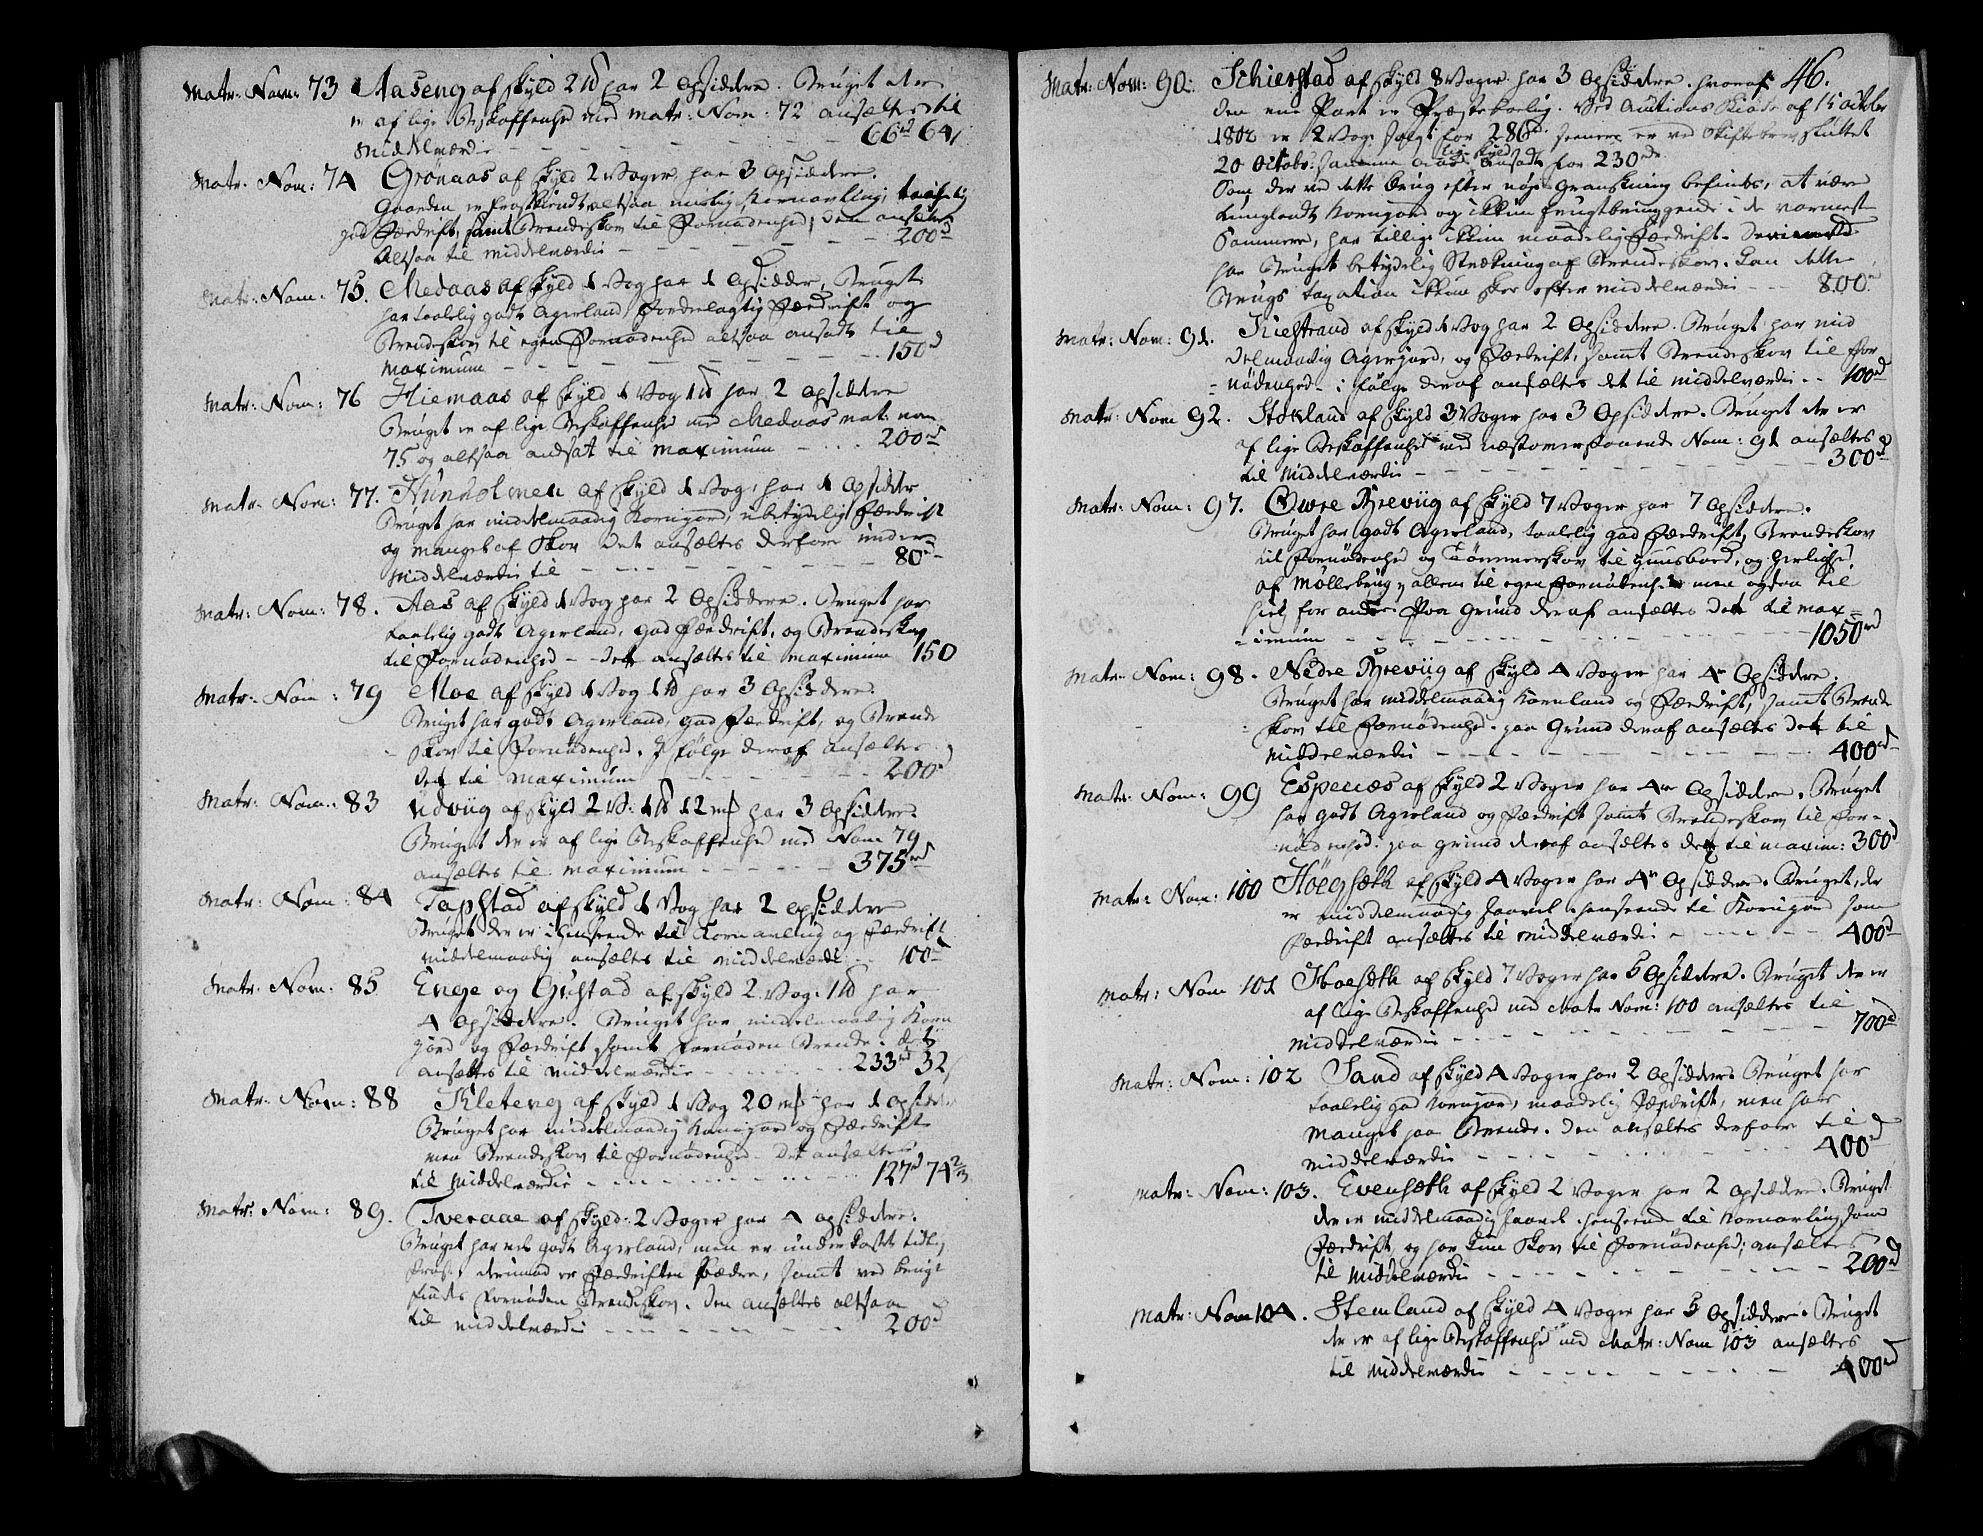 Matr: Nom: 73 Aaseng af Skyld 2 ℔ har 2 Opsiddere. Bruget der
er af lige Beskaffenhed med Matr: Nom: 72 ansættes til
Middelværdie - - - 66rd 64
Matr. Nom: 74 Grønaas af Skyld 2 Voger har 3 Opsiddere.
Gaarden er frostlændt altsaa mislig Kornavling; taalelig
god Fædrift, samt Brendeskov til Fornødenhed, den ansættes
altsaa til Middelværdie - - - 200rd
Matr: Nom: 75. Medaas af Skyld 1 Vog har 1 Opsidder, Bruget
har taalelig godt Agerland, fordelagtig Fædrift og
Brendeskov til egen Fornødenhed altsaa ansadt til
Maximum - - - 150rd
Matr: Nom: 76 Hiemaas af Skyld 1 Vog 1 ℔ har 2 Opsiddere
Bruget er af lige Beskaffenhed med Medaas Mat: Nom
75 og altsaa andsat til Maximum - - - 200rd
Matr. Nom: 77. Hunholmen af Skyld 1 Vog, har 1 Opsidder
Bruget har middelmaadig Kornjord, ubetydelig Fædrift
og Mangel af Skov det ansættes derfore under
Middelværdie til - - - 80rd
Matr. Nom: 78. Aas af Skyld 1 Vog har 2 Opsiddere. Bruget har
taalelig godt Agerland, god Fædrift, og Brendeskov
til Fornødenhed - det ansættes til Maximum 150
Matr: Nom: 79 Moe af Skyld 1 Vog 1 ℔ har 3 Opsiddere.
Bruget har godt Agerland, god Fædrift, og Brende
skov til Fornødenhed. I følge deraf ansættes
det til Maximum - - - 200rd
Matr: Nom: 83 Udviig af Skyld 2 V: 1 ℔ 12 mk har 3 Opsiddere.
Bruget der er af lige Beskaffenhed med Nom 79
ansættes til Maximum - - - 375rd
Matr: Nom: 84 Tapstad af Skyld 1 Vog har 2 Opsiddere
Bruget der er i Henseende til Kornavling og Fædrift
middelmaadig ansættes til Middelværdie - - 100rd
Matr: Nom: 85 Enge og Gustad af Skyld 2 Vog: 1 ℔ har
4 Opsiddere. Bruget har middelmaadig Korn
jord og Fædrift samt Fornøden Brende. det
ansættes til Middelværdie - - - 233rd 32
Matr: Nom: 88 Kleteng af Skyld 1 Vog 20 mk har 1 Opsidder
Bruget har middelmaadig Kornjord og Fædrift
men Brendeskov til Fornødenhed - Det ansættes
til Middelværdie - - - 127rd 74 2/3
Matr: Nom: 89. Tveraae af Skyld: 2 Voger har 4 Opsiddere.
Bruget har vel godt Agerland, men er underkastet tidlig
Frost, derimod er Fædriften bædre, samt ved Bruget
findes Fornøden Brendeskov. den ansættes altsaa
til Middelværdie - - - 200rd
46.
Matr: Nom: 90. Schierstad af Skyld 8 Voger har 3 Opsiddere. hvoraf
den ene Part er Præstebolig. Ved Auctions Skiøde af 15 Octobr
1802 er 2 Vog: solgt for 286rd senere er ved Skiftebrev sluttet
20 Octobr: samme Aar lige Skyld ansadt for 230rd.
Som der ved dette Brug efter nøje Granskning befindes, at være
tunglændt Kornjord og ikkun frugtbringende i de varmeste
Sommere, har tillige ikkun maadelig Fædrift.
har Bruget betydelig Strækning af Brendeskov. Kan dette
Brugs Taxation ikkun skee efter Middelværdie - - - 800rd
Matr: Nom: 91. Kiestrand af Skyld 1 Vog har 2 Opsiddere. Bruget har mid
delmaadig Agerjord, og Fædrift, samt Brendeskov til For
nødenhed - i følge deraf ansættes det til Middelværdie - - 100rd
Matr: Nom 92. Stokland af Skyld 3 Voger har 3 Opsiddere. Bruget der er
af lige Beskaffenhed med næstovenstaaende Nom: 91 ansættes
til Middelværdie - - - 300rd
Matr: Nom: 97. Øvre Breviig af Skyld 7 Voger har 7 Opsiddere.
Bruget har godt Agerland, taalelig god Fædrift, Brendeskov
til Fornødenhed og Tømmerskov til Huusbood, og Herlighed
af Møllebrug ey allene til egen Fornødenhed men ogsaa til
Hielp for andre. Paa Grund deraf ansættes det til Max-
imum - - - 1050rd
Matr: Nom: 98. Nedre Breviig af Skyld 4 Voger har 4re Opsiddere.
Bruget har middelmaadig Kornland og Fædrift, samt Brende
skov til Fornødenhed. paa Grund deraf ansættes det til
Middelværdie - - - 400rd
Matr: Nom: 99 Espenæs af Skyld 2 Voger har 4re Opsiddere. Bruget
har godt Agerland og Fædrift samt Brendeskov til For-
nødenhed: paa grund deraf ansættes det til Maxim: 300rd
Matr: Nom: 100 Höegsæth af Skyld 4 Voger har 4re Opsiddere. Bruget, der
er middelmaadig saavel i Henseende til Kornjord som
Fædrift ansættes til Middelværdie - - - 400rd
Matr: Nom 101 Hoesæth af Skyld 7 Voger har 5 Opsiddere. Bruget der er
af lige Beskaffenhed med Matr Nom: 100 ansættes til
Middelværdie - - - 700rd
Matr: Nom: 102 Sand af Skyld 4 Voger har 2 Opsiddere Bruget har
taalelig god Kornjord, maadelig Fædrift, men har
Mangel paa Brende. Den ansættes derfore til
Middelværdie - - - 400rd
Matr: Nom: 103. Evensæth af Skyld 2 Voger har 2 Opsiddere. Bruget
der er middelmaadig saavel i Henseende til Kornavling som
Fædrift, og har kun Skov til Fornødenhed; ansættes
til Middelværdie - - - 200rd
Matr: Nom 104. Stemland af Skyld 4 Voger har 5 Opsiddere. Bruget
der er af lige Beskaffenhed med Matr: Nom 103 ansættes
til Middelværdie - - - 400rd